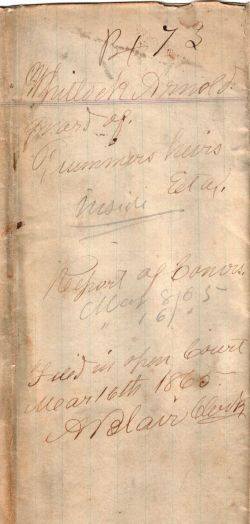 Bx 73
Whitlock Arnold
guard of
Trummers heirs
Et al.
Inside
Report of Comrs.
Mar 8/65
" 16/ "
Filed in open Court
Mar 16th 1865
A Blair Clerk